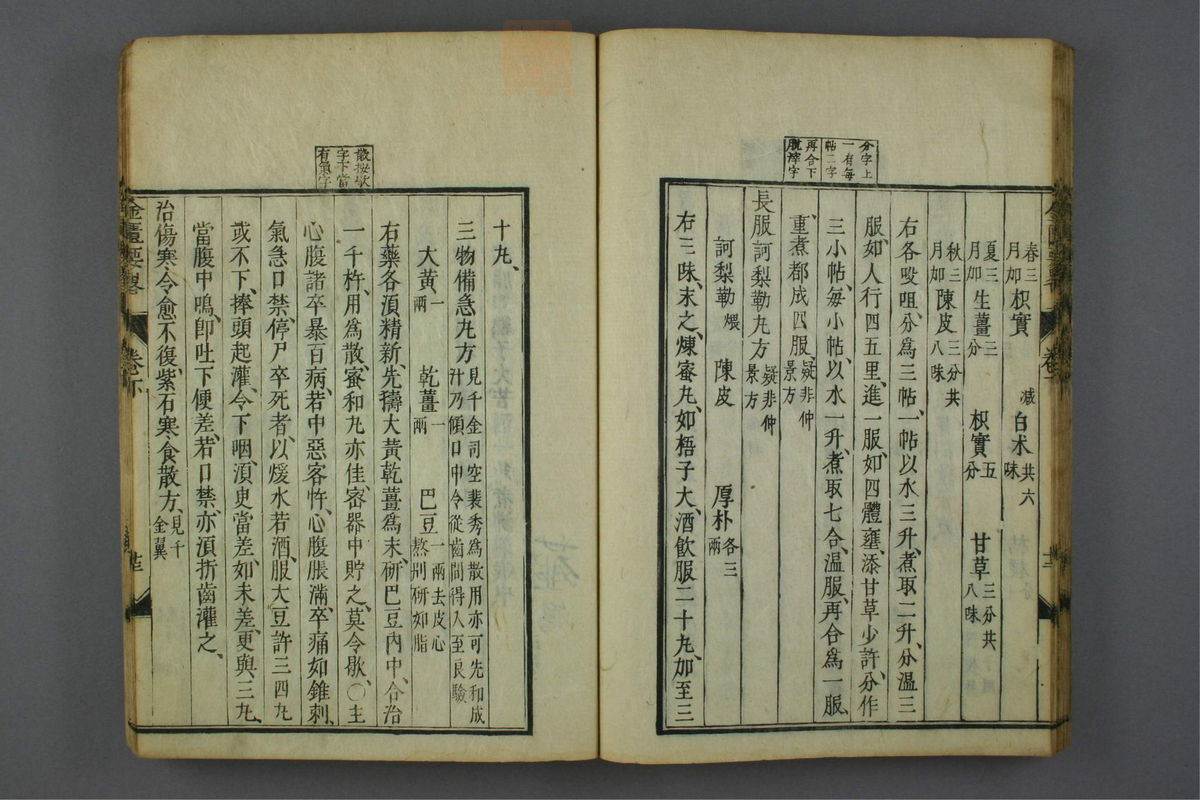 分字上
一有每
帖二字
再合下
脫滓字
春三月加枳實 減白朮 共六味
夏三月加生薑三分 枳實五分 甘草三分共八味
秋三月加陳皮三分共八味
右各㕮咀、分為三帖、一帖以水三升、煮取二升、分溫三
服、如人行四五里、進一服、如四體壅、添甘草少許、分作
三小帖、每小帖以水一升、煮取七合、溫服、再合為一服、
重煮都成四服、疑非仲景方
長服訶梨勒丸方 疑非仲景方
訶梨勒煨 陳皮 厚朴各三兩
右三味、末之、煉蜜丸、如梧子大、酒飲服二十丸、加至三
散按歇
字下當
有氣字
十丸、
三物備急丸方 見千金司空裴秀為散用亦可先和成汁乃傾口中令從齒間得入至良驗
大黃一兩 乾薑一兩 巴豆一兩去皮心熬別研如脂
右藥各須精新、先擣大黃乾薑為末、研巴豆內中、合治
一千杵、用為散、蜜和丸亦佳、密器中貯之、莫令歇、〇主
心腹諸卒暴百病、若中惡客忤、心腹脹滿、卒痛如錐刺、
氣急口禁、停尸卒死者、以煖水若酒、服大豆許三四丸
或不下、捧頭起灌、令下咽、須臾當差、如未差、更與三丸、
當腹中鳴、即吐下便差、若口禁、亦須折齒灌之、
治傷寒令愈不復、紫石寒食散方、見千金翼
金匱要略
卷下